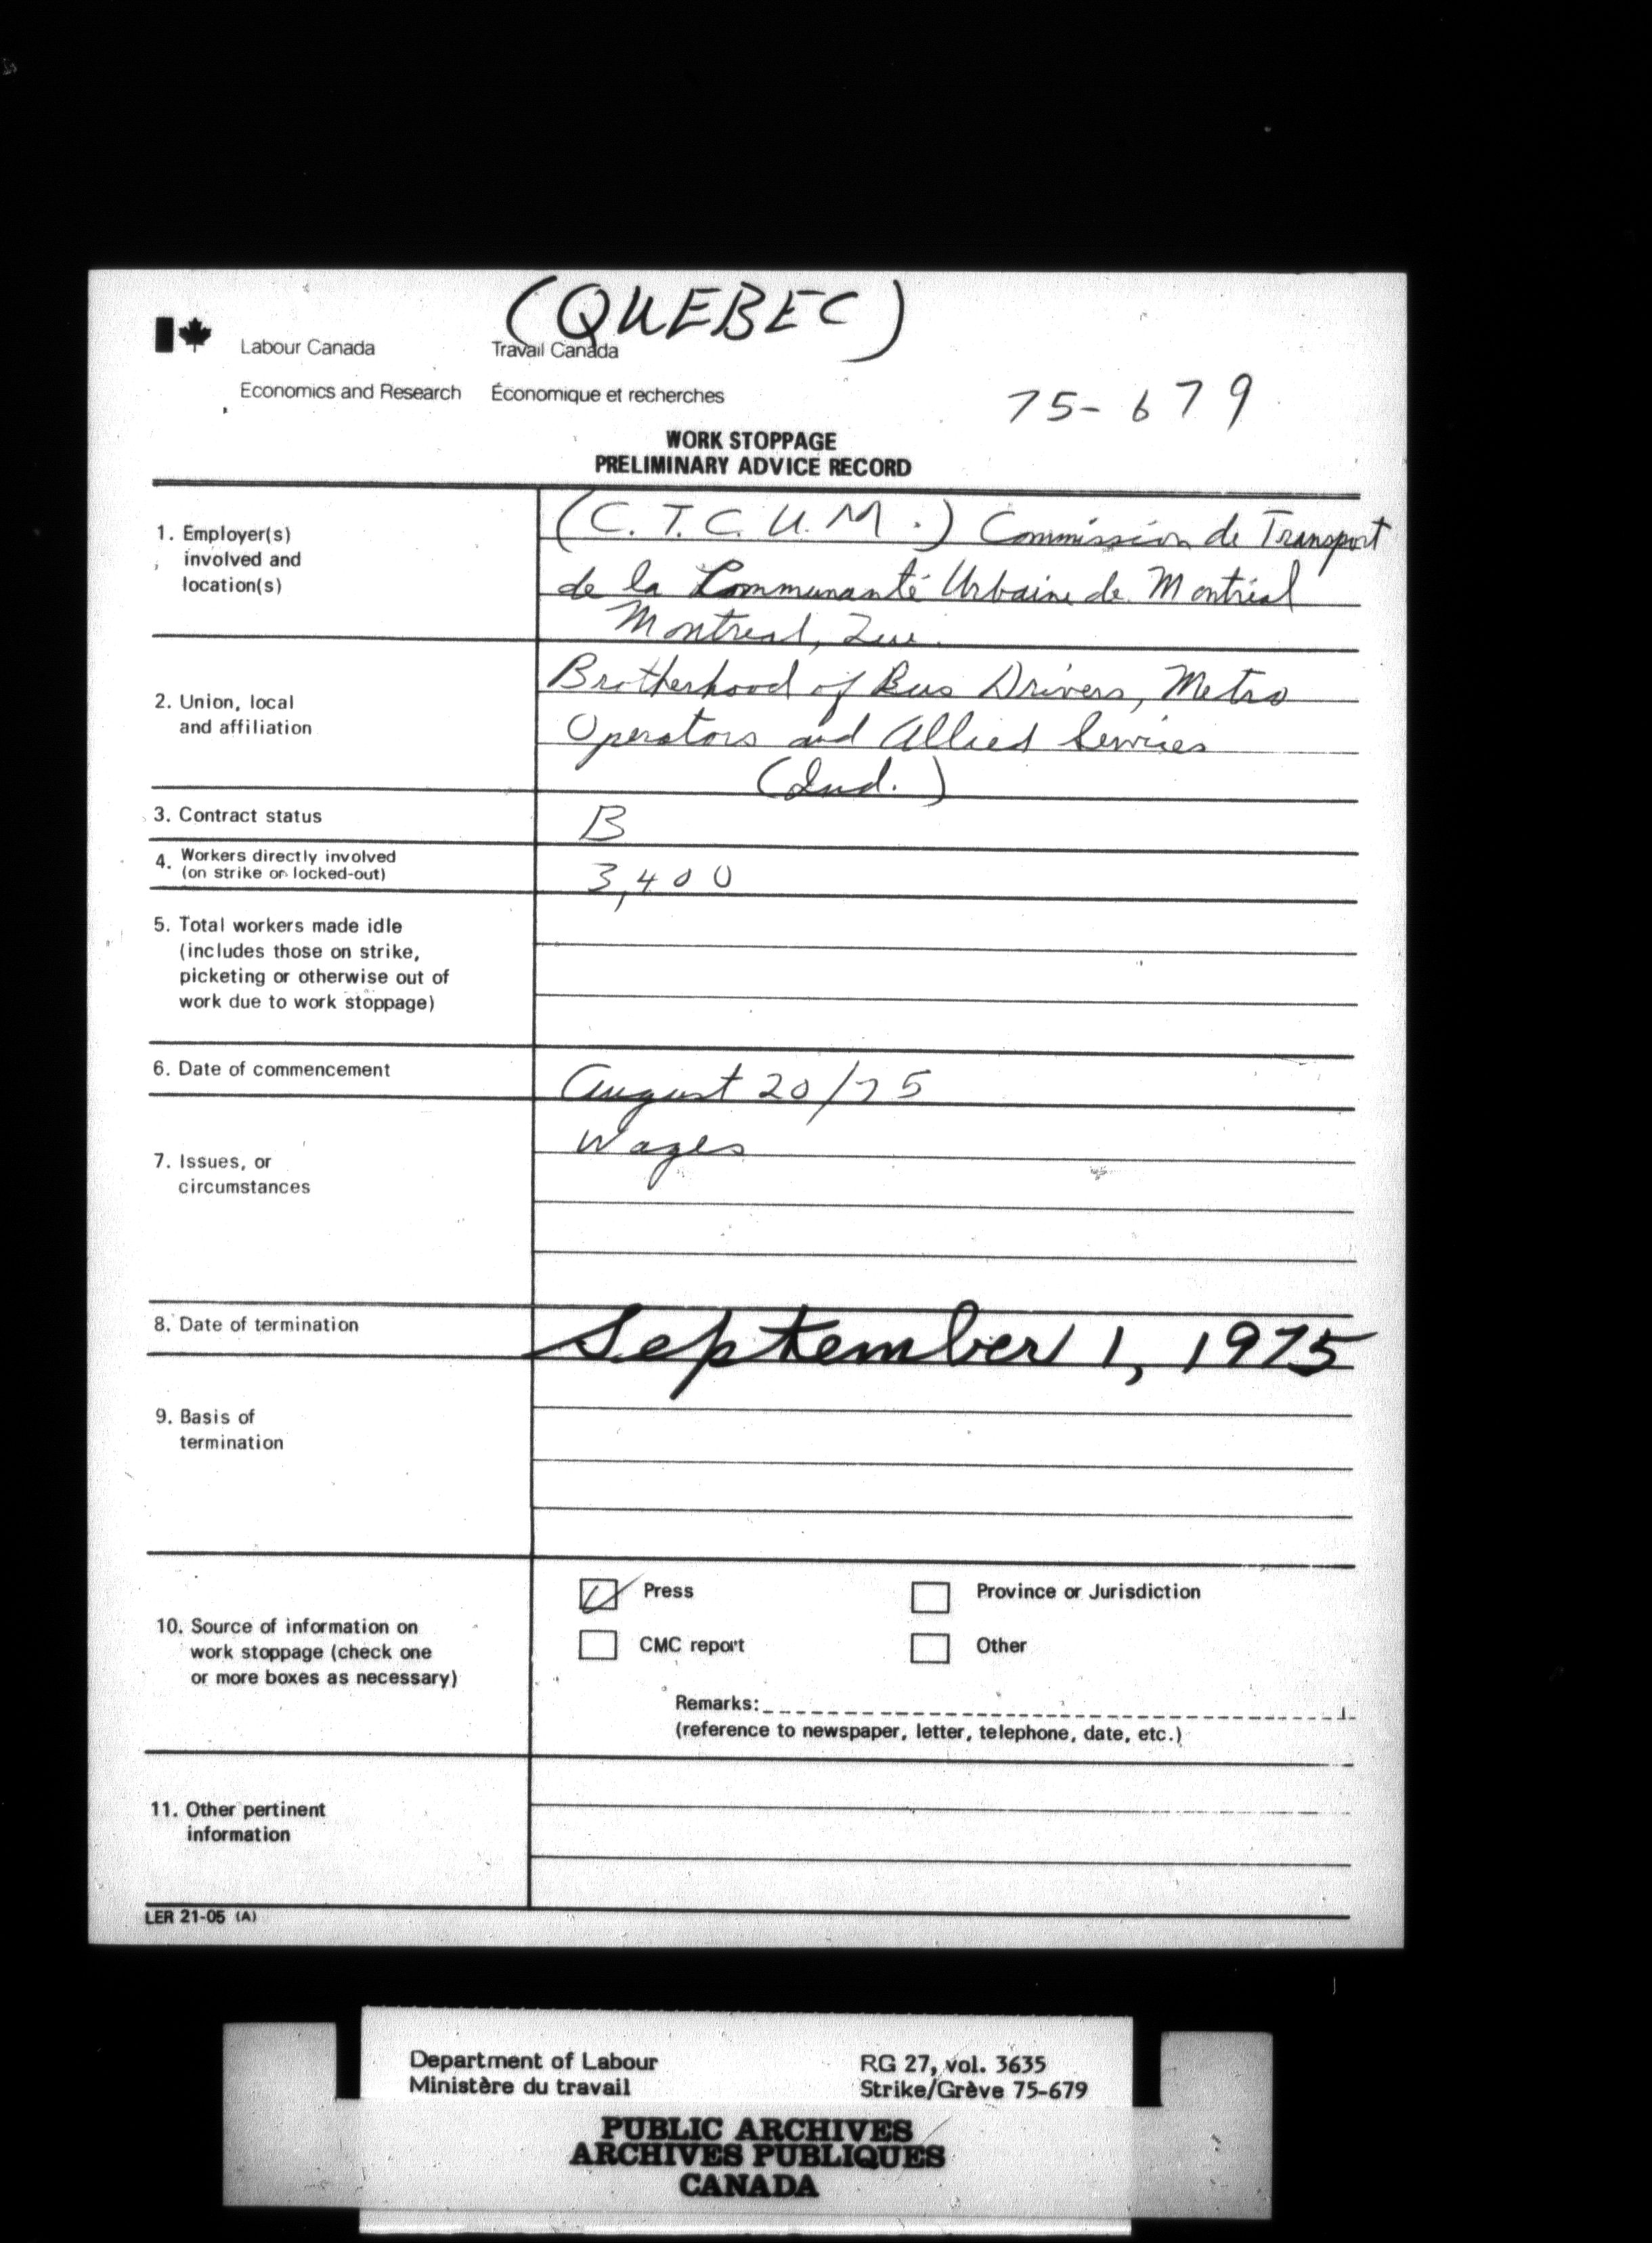 (QUEBEC)
Labour Canada Travail Canada
Economics and Research Économique et recherches
75-679
WORK STOPPAGE
PRELIMINARY ADVICE RECORD
1. Employer(s)
involved and
location(s)
(C.T.C.U.M.) Commission de Transport
de la Communauté Urbaine de Montréal
Montreal, Que.
2. Union, local
and affiliation
Brotherhood of Bus Drivers, Metro
Operators and Allied Services
(Ind.)
3. Contract status
B
4. Workers directly involved
(on strike or locked-out)
3,400
5. Total workers made idle
(includes those on strike,
picketing or otherwise out of
work due to work stoppage)
6. Date of commencement
August 20/75
7. Issues, or
circumstances
Wages
8. Date of termination
September 1, 1975
9. Basis of
termination
10. Source of information on
work stoppage (check one
or more boxes as necessary)
Press Province or Jurisdiction
CMC report Other
Remarks:
(reference to newspaper, letter, telephone, date, etc.)
11. Other pertinent
information
LER 21-05 (A)
Department of Labour RG 27, vol. 3635
Ministère du travail Strike/Grève 75-679
PUBLIC ARCHIVES
ARCHIVES PUBLIQUES
CANADA